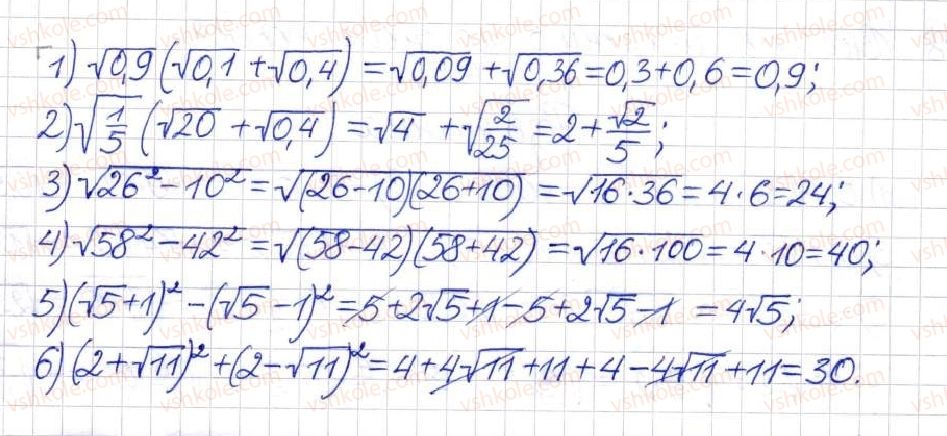 1) √0,9 (√0,1 + √0,4) = √0,09 + √0,36 = 0,3 + 0,6 = 0,9;
2) √(1/5) (√20 + √0,4) = √4 + √(2/25) = 2 + √2/5;
3) √(26² - 10²) = √((26-10)(26+10)) = √(16·36) = 4·6 = 24;
4) √(58² - 42²) = √((58-42)(58+42)) = √(16·100) = 4·10 = 40;
5) (√5+1)² - (√5-1)² = 5 + 2√5 + 1 - 5 + 2√5 - 1 = 4√5;
6) (2+√11)² + (2-√11)² = 4 + 4√11 + 11 + 4 - 4√11 + 11 = 30.
vshkole.com